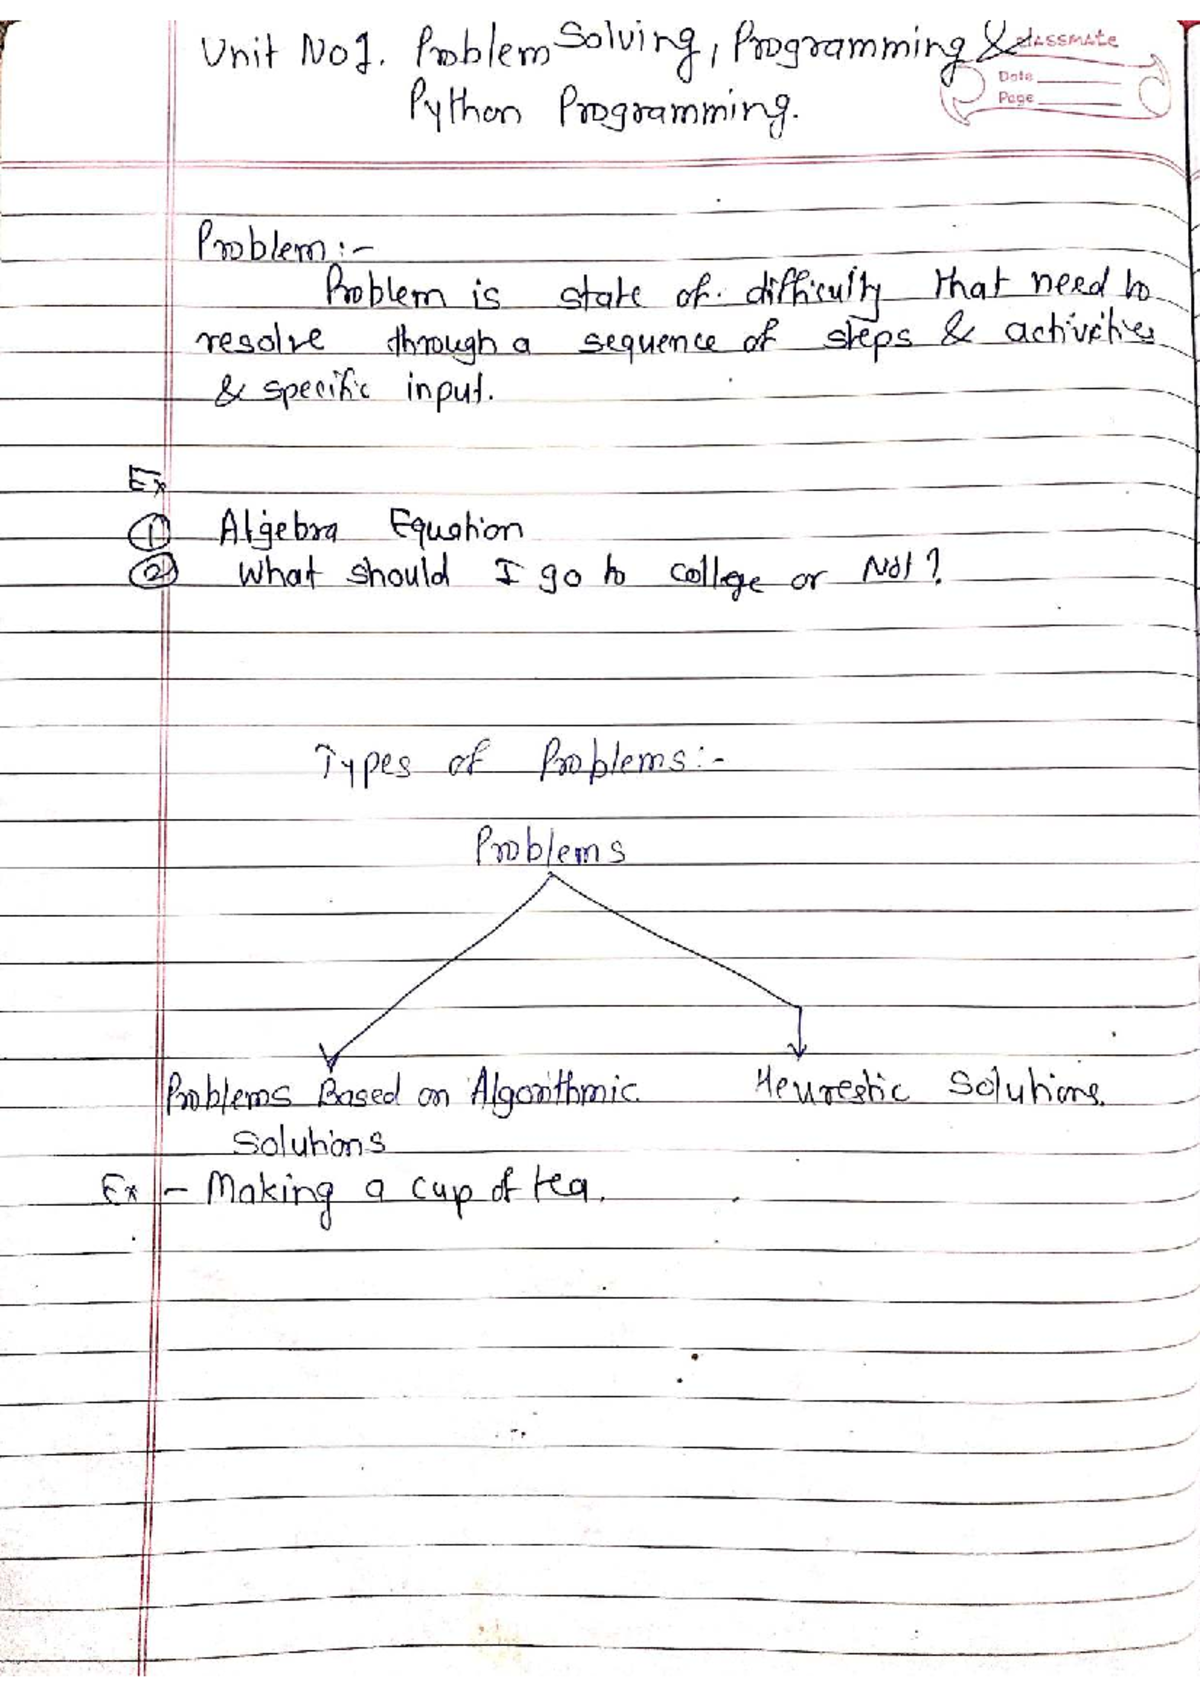 Unit No 1. Problem Solving, Programming &
classmate
Date
Page
Python Programming.
Problem :-
Problem is state of difficulty that need to
resolve through a sequence of steps & activities
& specific input.
Ex
① Algebra Equation
② What should I go to college or Not?
Types of Problems :-
Problems
Problems Based on Algorithmic Heurestic Solutions.
Solutions
Ex - Making a cup of tea.